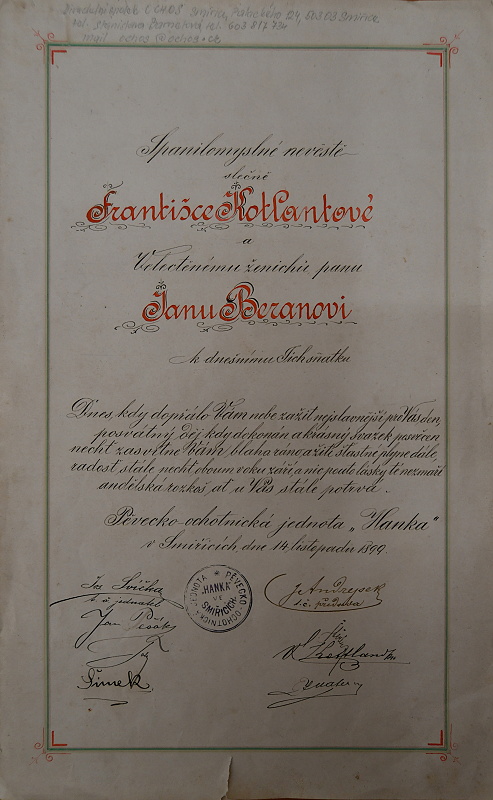 Divadelní spolek OCHOS Smiřice, Palackého 124, 503 03 Smiřice
tel. 603 817 734
mail ochos@ochos.cz
Spanilomyslné nevěstě
slečně
Františce Kotlantové
a
Velectěnému ženichu panu
Janu Beranovi
k dnešnímu Jich sňatku
Dnes, kdy dopřálo Vám nebe zažít nejslavnější pro Vás den,
posvátný děj, kdy dokonán a krásný svazek posvěcen
nechť zasvitne Vám blaha ráno a žití šťastně plyne dále,
radost stále nechť oboum v oku září a nic pouto lásky té nezmaří
andělská rozkoš, ať u Vás stále potrvá.
Pěvecko-ochotnická jednota „Hanka“
v Smiřicích dne 14. listopadu 1899.
Jos Svička
t. č. jednatel
J. Andrejsek
t. č. předseda
PĚVECKO-OCHOTNICKÁ JEDNOTA
„HANKA“
VE
SMIŘICÍCH
Jan
Šimek